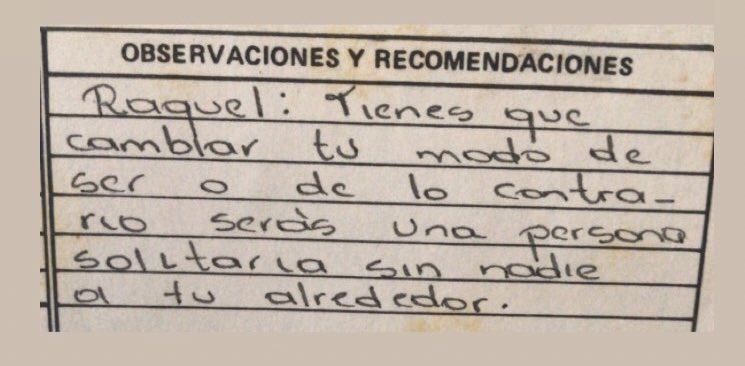 OBSERVACIONES Y RECOMENDACIONES
Raquel: Tienes que
cambiar tu modo de
ser o de lo contra-
rio serás una persona
solitaria sin nadie
a tu alrededor.